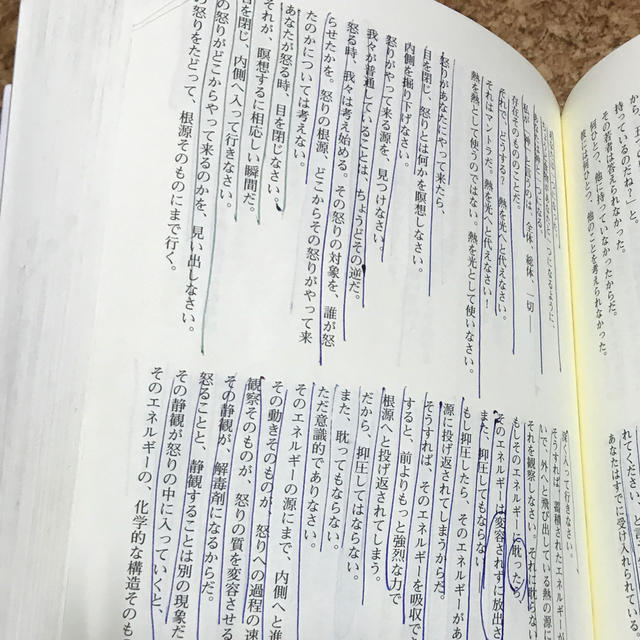 から、
持っているのだね？」と。
その若者は答えられなかった。
何ひとつ、他に持っていなかったからだ。
彼には何ひとつ、他のことを考えられなかった。
れてください」と言う
あなたはすでに受け入れられ
一つになるように、
あなたは神と一つになる。
私が「神」と言うのは、全体、総体、一切──
存在そのもののことだ。
それで、どうする？ 熱を光へと代えなさい。
それはマントラだ。熱を光へと代えなさい！
熱を熱として使うのではない。熱を光として使いなさい。
怒りがあなたにやって来たら、
目を閉じ、怒りとは何かを瞑想しなさい。
内側を掘り下げなさい。
怒りがやって来る源を、見つけなさい。
我々が普通していることは、ちょうどその逆だ。
怒る時、我々は考え始める。その怒りの対象を、誰が怒
らせたかを。怒りの根源、どこからその怒りがやって来
たのかについては考えない。
あなたが怒る時、目を閉じなさい。
それが、瞑想するに相応しい瞬間だ。
目を閉じ、内側へ入って行きなさい。
怒りがどこからやって来るのかを、見い出しなさい。
怒りをたどって、根源そのものにまで行く。
深く入って行きなさい。
そうすれば、蓄積されたエネルギー
いで、外へと飛び出している熱の源に
それを観察しなさい。それに耽らない
もしそのエネルギーに耽ったら、
そのエネルギーは変容されずに放出さ
また、抑圧してもならない。
もし抑圧したら、そのエネルギーがま
源に投げ返されてしまうからだ。
そうすれば、そのエネルギーを吸収で
すると、前よりもっと強烈な力で
根源へと投げ返されてしまう。
だから、抑圧してはならない。
また、耽ってもならない。
ただ意識的でありなさい。
そのエネルギーの源にまで、内側へと進
その動きそのものが、怒りへの過程の速
観察そのものが、怒りの質を変容させる
その静観が、解毒剤になるからだ。
怒ることと、静観することは別の現象だ
その静観が怒りの中に入っていくと、
そのエネルギーの、化学的な構造そのも